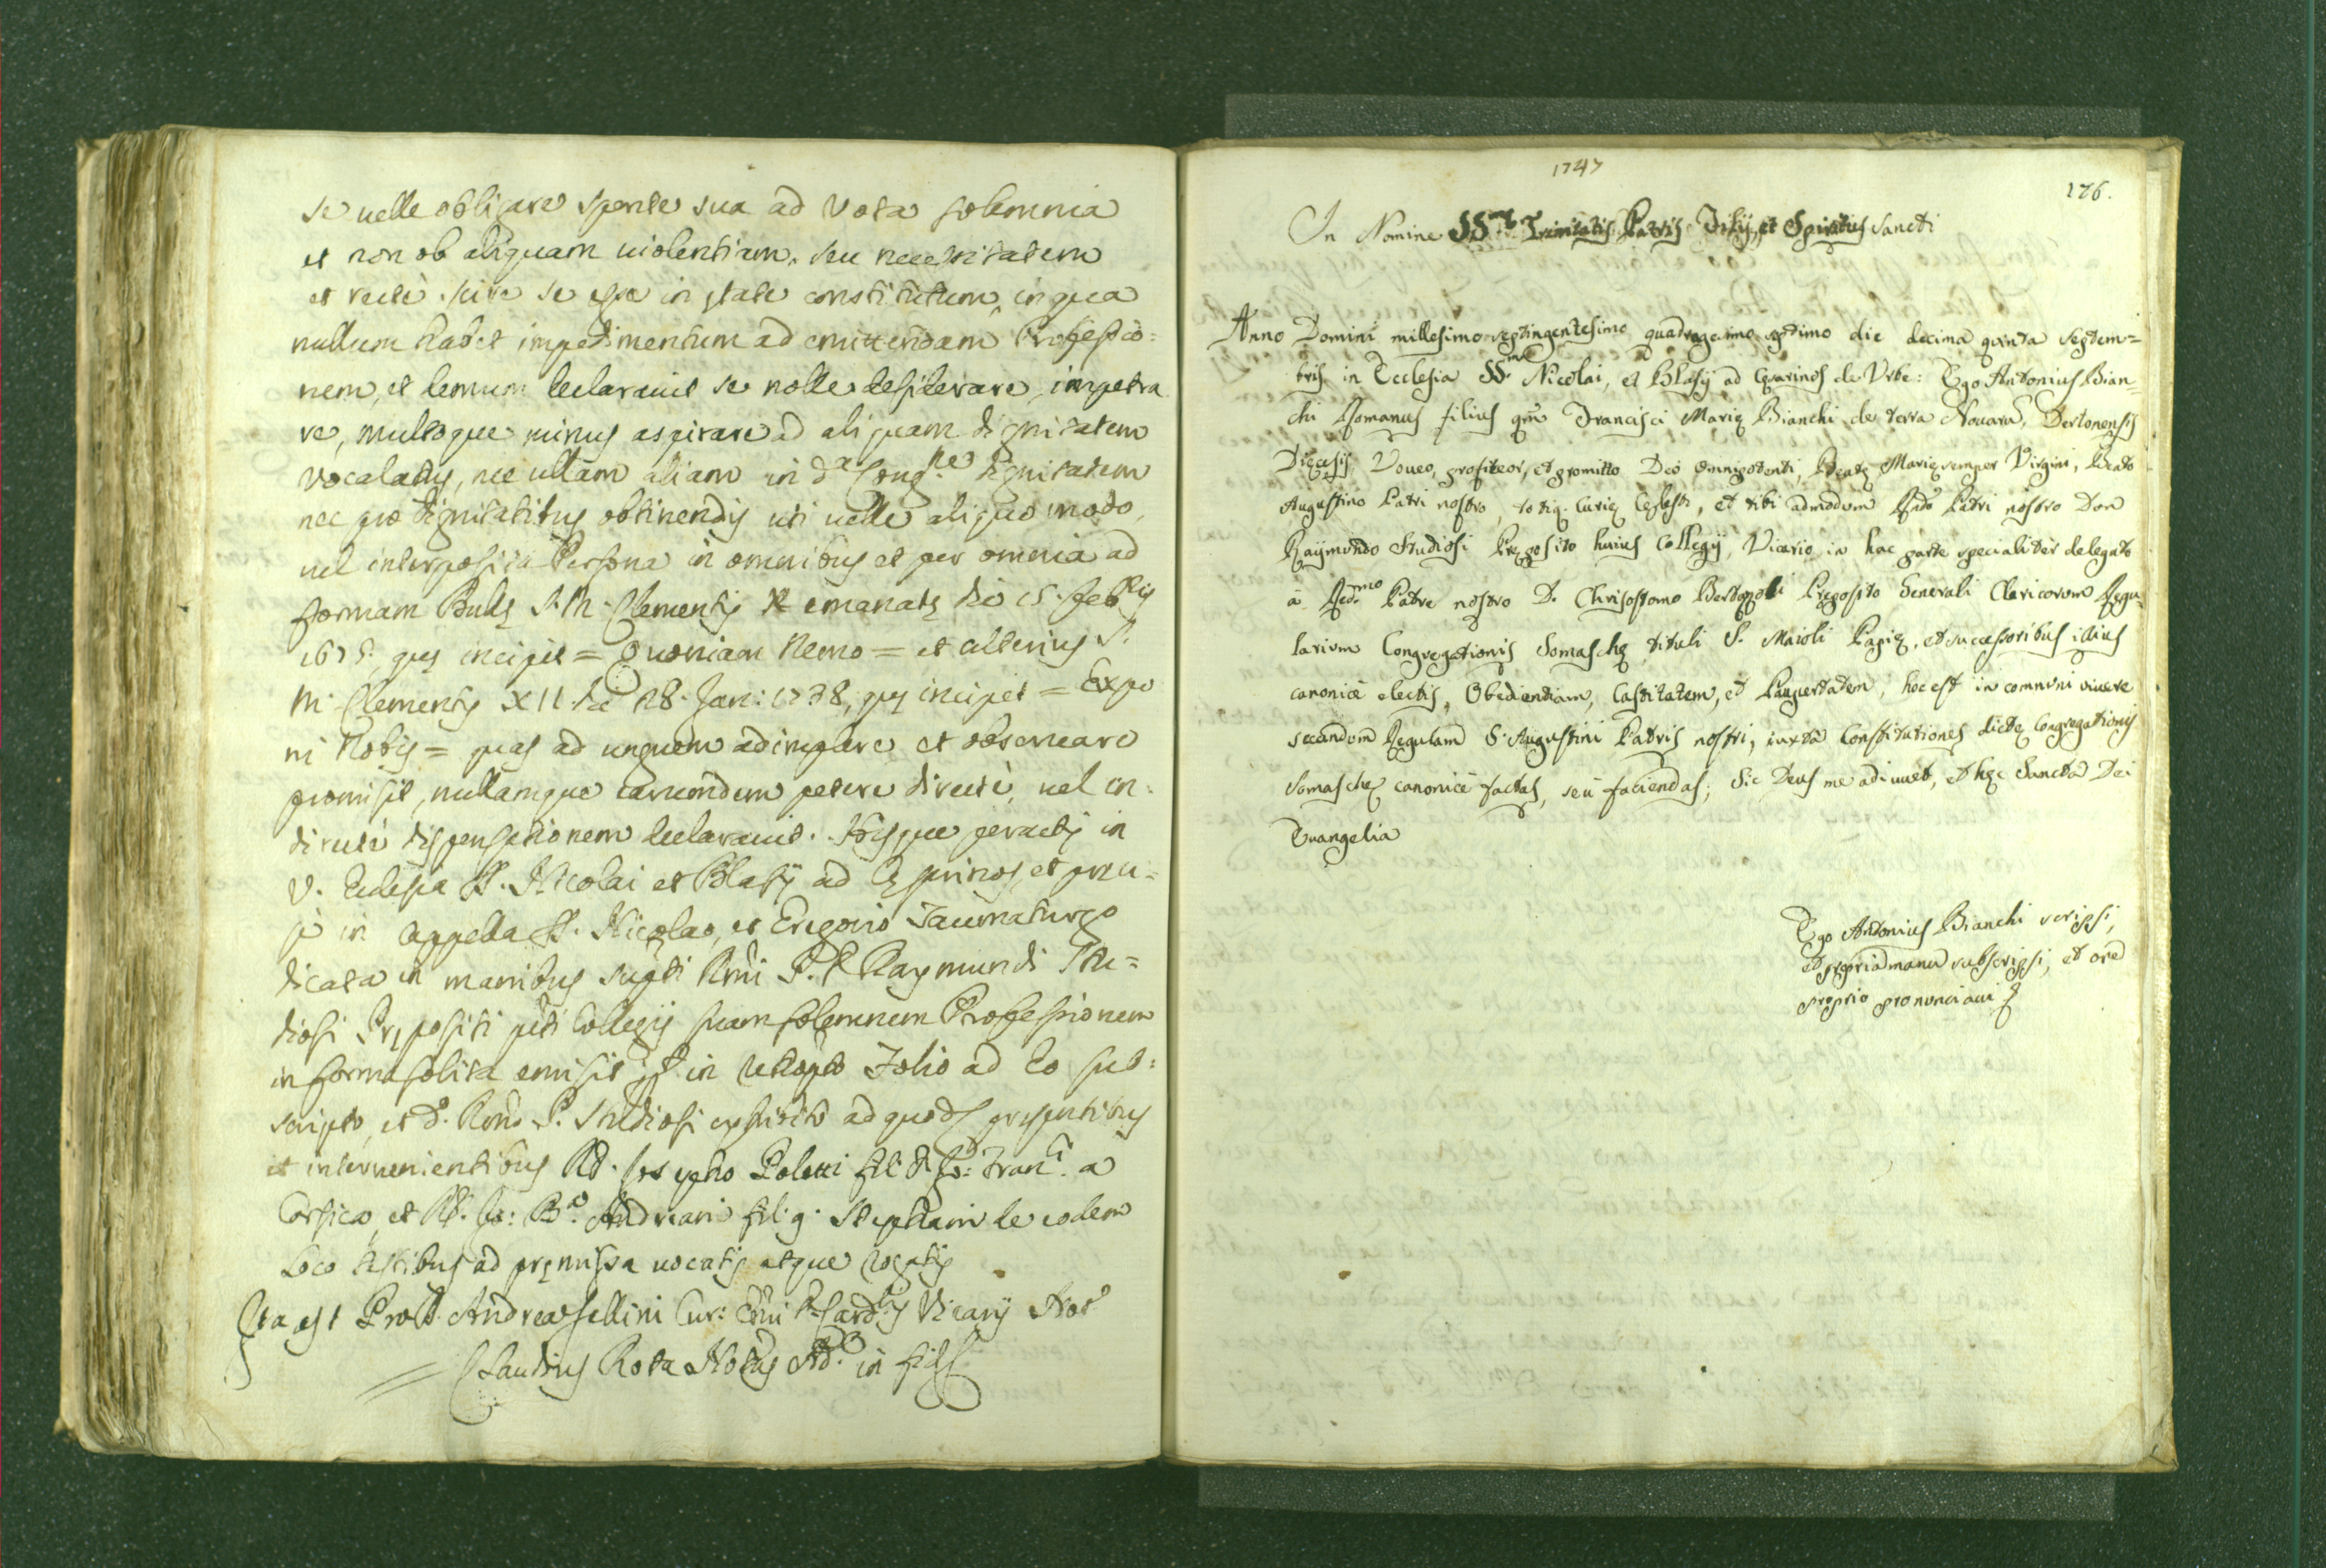 se uelle obligare sponte sua ad Vota solemnia
et non ob aliquam uiolentiam, seu necessitatem
et recte scire se esse in ętate constitutum, in qua
nullum habet impedimentum ad emittendam Professio=
nem, et demum declarauit se nolle desiderare, impetra
re, multoque minus aspirare ad aliquam dignitatem
Vocalatus, nec ullam aliam in da Congne dignitatem
nec pro dignitatibus obtinendis uti uelle aliquo modo
uel interposita Persona in omnibus et per omnia ad
formam Bullę S. M. Clementis X emanatę die 15. Febris
1675. quę incipit = Quoniam Nemo = et alterius S.
M. Clementis XII die 28. Jan: 1738, quę incipit = Expo
ni Nobis = quas ad unguem adimplere et obseruare
promisit, nullamque earumdem petere directe, uel in=
directe dispensationem declarauit. Hisque peractis in
V. Eclesia SS. Nicolai et Blasij ad Cęsarinos, et
in Cappella S. Nicolao, et Gregorio Taumaturgo
dicata in manibus supti Rmi P. D. Raymundi Stu=
diosi Prępositi pti Collegij suam solemnem Professionem
in forma solita emisit in Folio ad Eo sub=
scripto, et d. Rmo P. Studiosi exhibito ad quod pręsentibus
et interuenientibus RD. Josepho Poletti fil. q. Jo: Franci a
Corsica, et RD. Jo: Ba Andreani fil. q. Stephani de eodem
Loco testibus ad pręmissa uocatis atque rogatis
Ita est Pro D. Andrea Sellini Cur: Emi Cardlis Vicarij Noto
= Claudius Rota Notus in fidem
1747
176.
In Nomine SSmę Trinitatis Patris Filij, et Spiritus Sancti
Anno Domini millesimo septingentesimo quadragesimo septimo die decima quinta Septem=
bris in Ecclesia SS. Nicolai, et Blasij ad Cęsarinos de Vrbe: Ego Antonius Bian=
chi Romanus filius qm Francisci Marię Bianchi de terra Nouara, Dertonensis
Dięcesis Voueo, profiteor, et promitto Deo omnipotenti, Beatę Marię semper Virgini, Beato
Augustino Patri nostro, totiq. Curię Cęlesti, et tibi admodum Rdo Patri nostro Don
Raymondo Studiosi Pręposito huius Collegij, Vicario in hac parte specialiter delegato
à Redmo Patre nostro D. Chrisostomo Bertazoli Pręposito Generali Clericorum Regu=
larium Congregationis Somaschę, tituli S. Maioli Papię, et successoribus illius
canonicè electis, Obedientiam, Castitatem, et Paupertatem, hoc est in communi uiuere
secundum Regulam S. Augustini Patris nostri, iuxta Constitutiones dictę Congregationis
Somaschę canonicè factas, seu faciendas; Sic Deus me adiuuet, et hęc Sancta Dei
Euangelia
Ego Antonius Bianchi scripsi,
et propria manu subscripsi, et ore
proprio pronunciaui